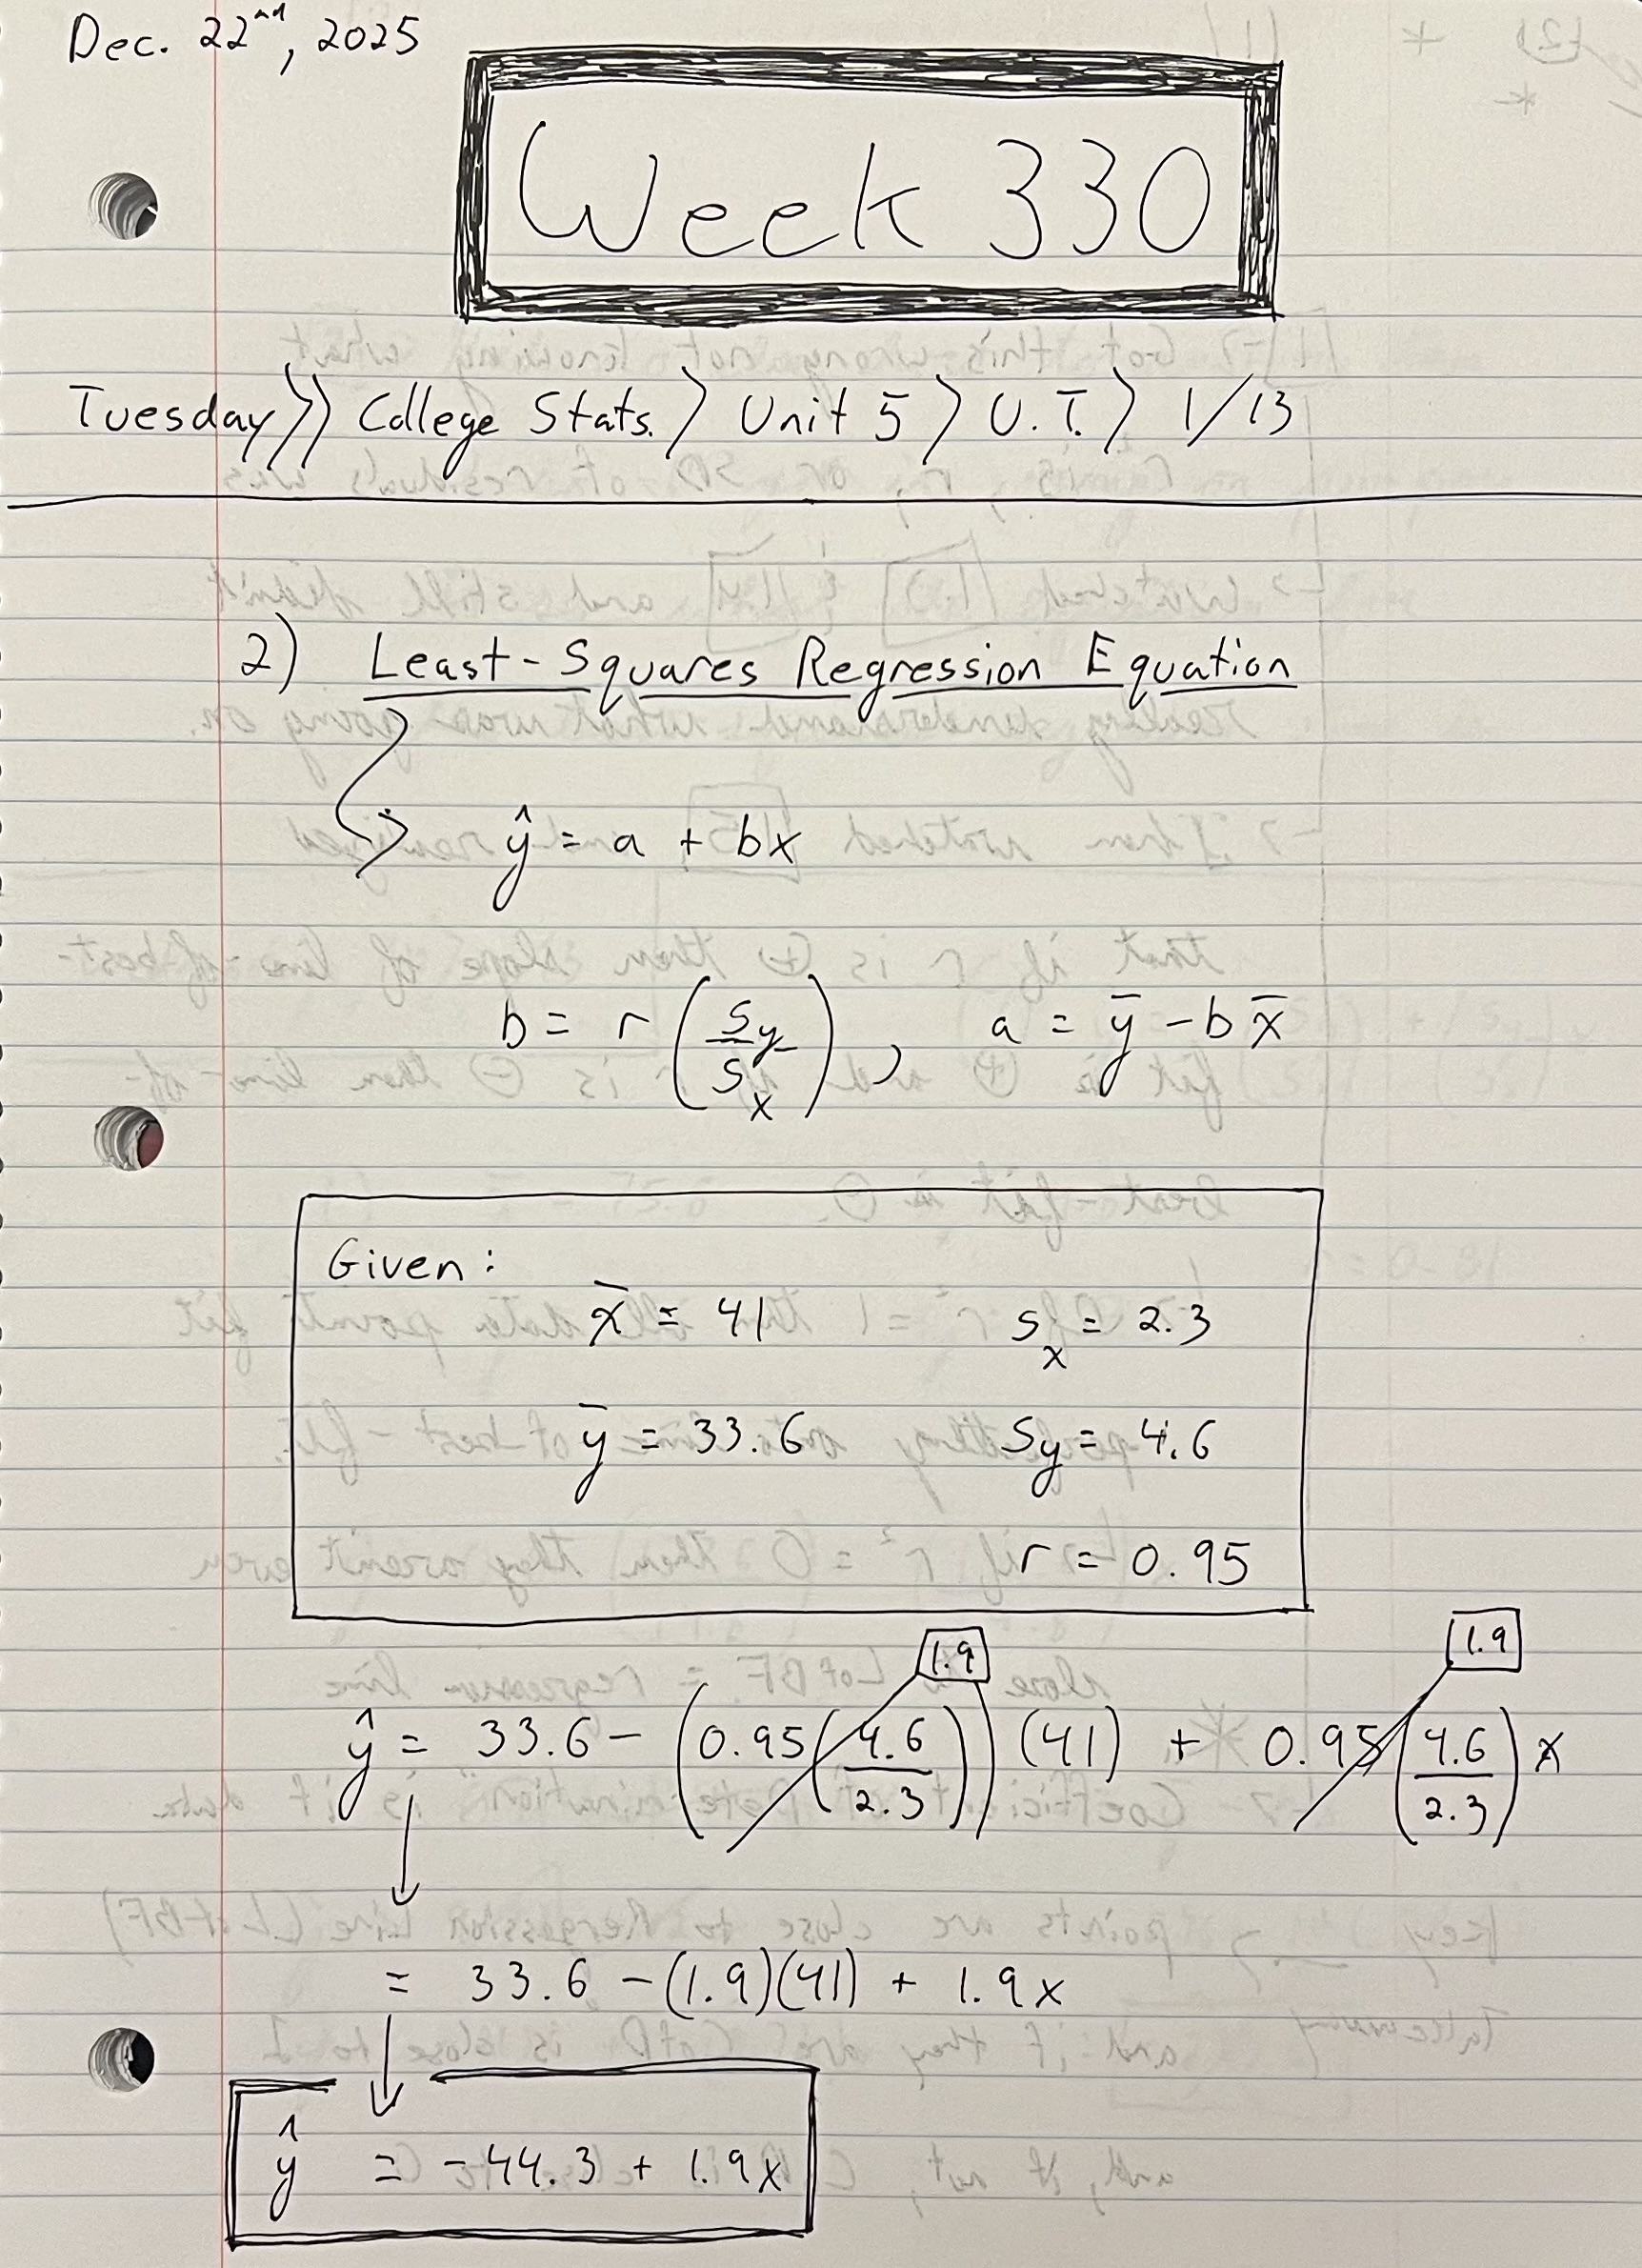 Dec. 22nd, 2025
Week 330
Tuesday >> College Stats. > Unit 5 > U.T. > 1/13
2) Least-Squares Regression Equation
ŷ = a + bx
b = r(sy/sx), a = ȳ - bx̄
Given:
x̄ = 41 sx = 2.3
ȳ = 33.6 sy = 4.6
r = 0.95
1.9 1.9
ŷ = 33.6 - (0.95(4.6/2.3))(41) + 0.95(4.6/2.3)x
= 33.6 - (1.9)(41) + 1.9x
ŷ = -44.3 + 1.9x